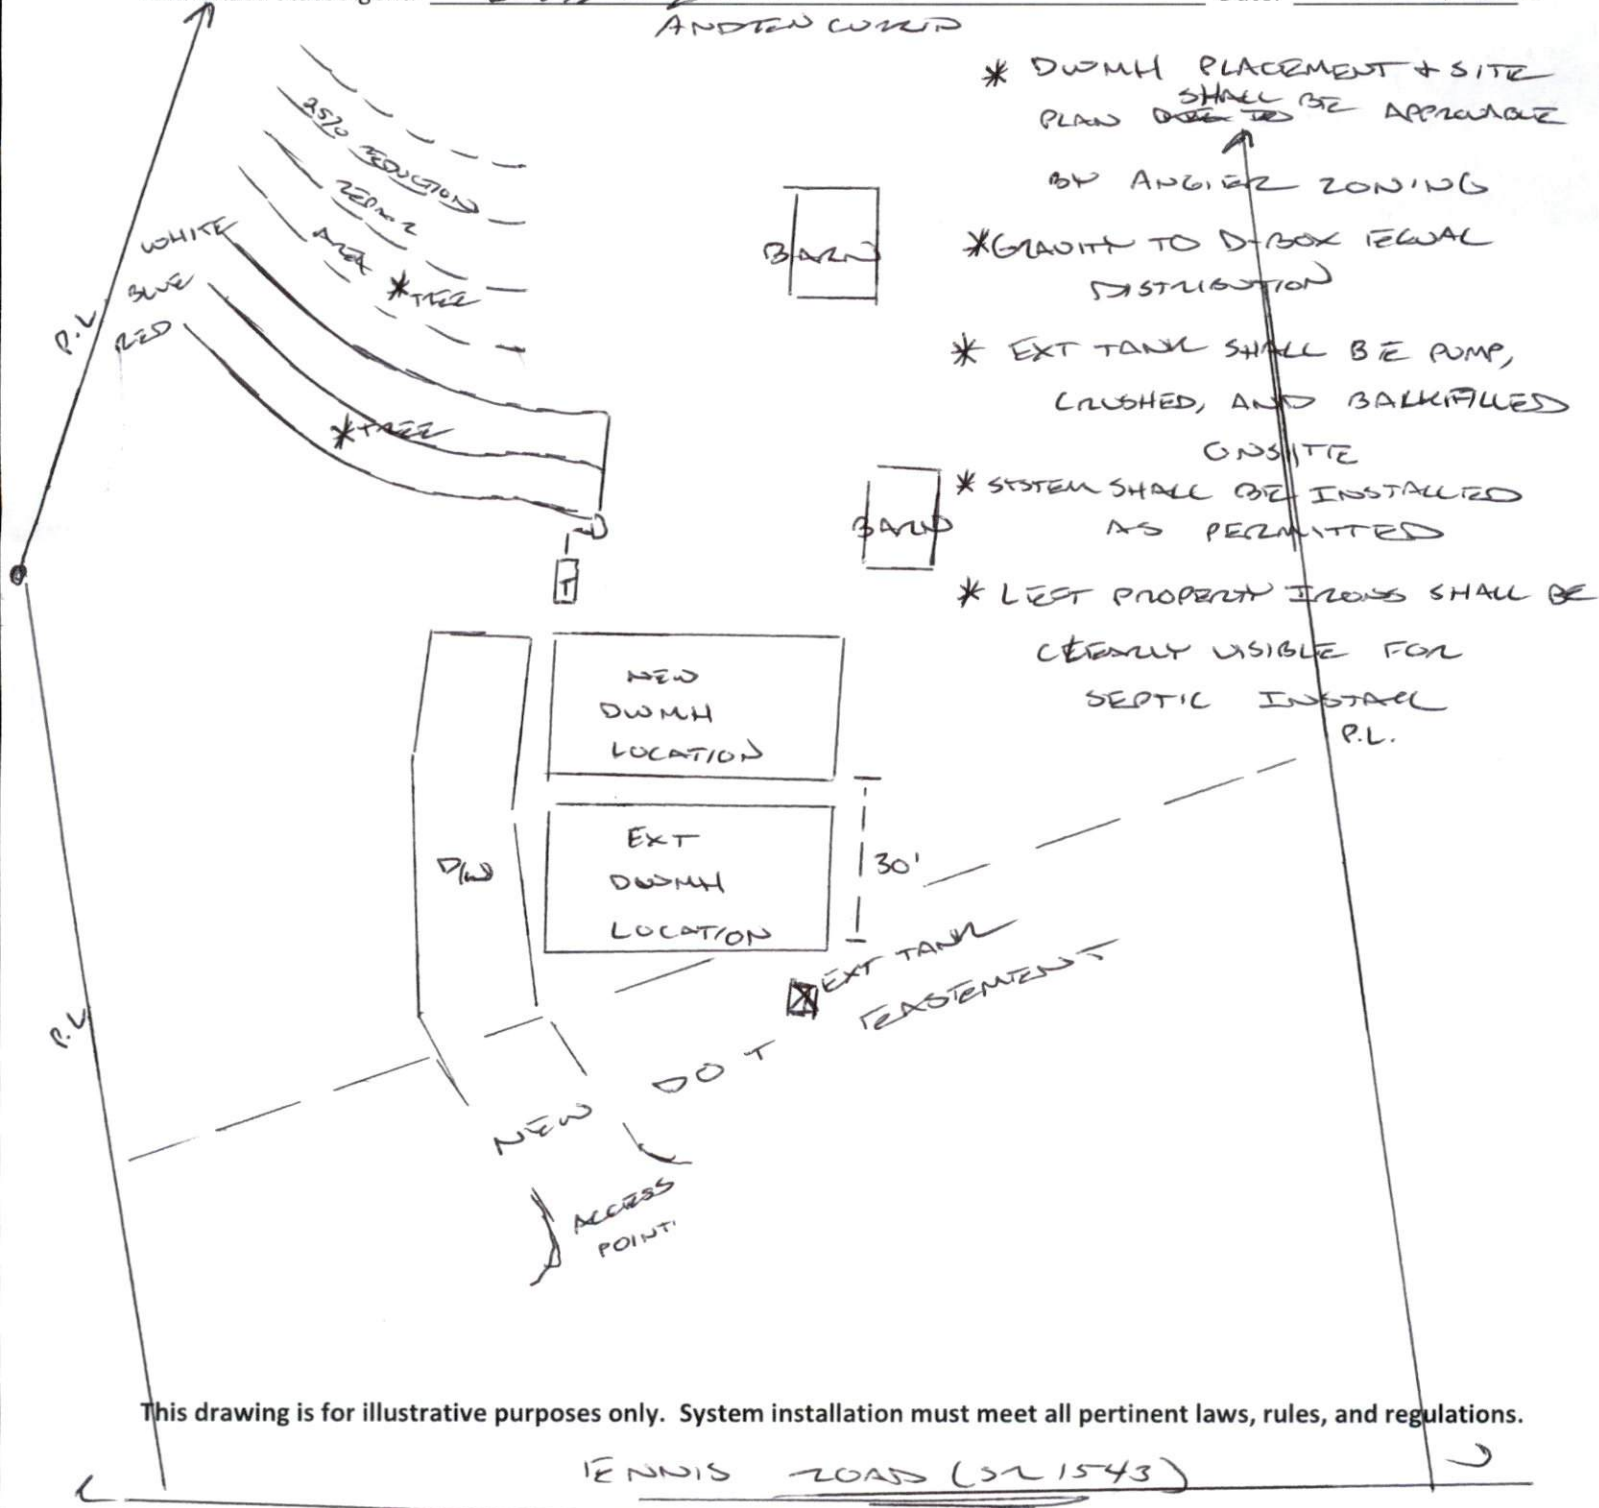 ANDREW CURRIN
* DWMH PLACEMENT + SITE
PLAN SHALL BE APPROVABLE
BY ANGIER ZONING
* GRAVITY TO D-BOX EQUAL
DISTRIBUTION
* EXT TANK SHALL BE PUMP,
CRUSHED, AND BACKFILLED
ONSITE
* SYSTEM SHALL BE INSTALLED
AS PERMITTED
* LEFT PROPERTY IRONS SHALL BE
CLEARLY VISIBLE FOR
SEPTIC INSTALL
P.L.
25% REDUCTION
REPAIR
AREA
*TREE
WHITE
BLUE
RED
P.L
*TREE
BARN
BARN
T
NEW
DWMH
LOCATION
EXT
DWMH
LOCATION
D/W
30'
EXT TANK
NEW DOT EASEMENT
P.L
ACCESS
POINT
This drawing is for illustrative purposes only. System installation must meet all pertinent laws, rules, and regulations.
ENNIS ROAD (SR 1543)